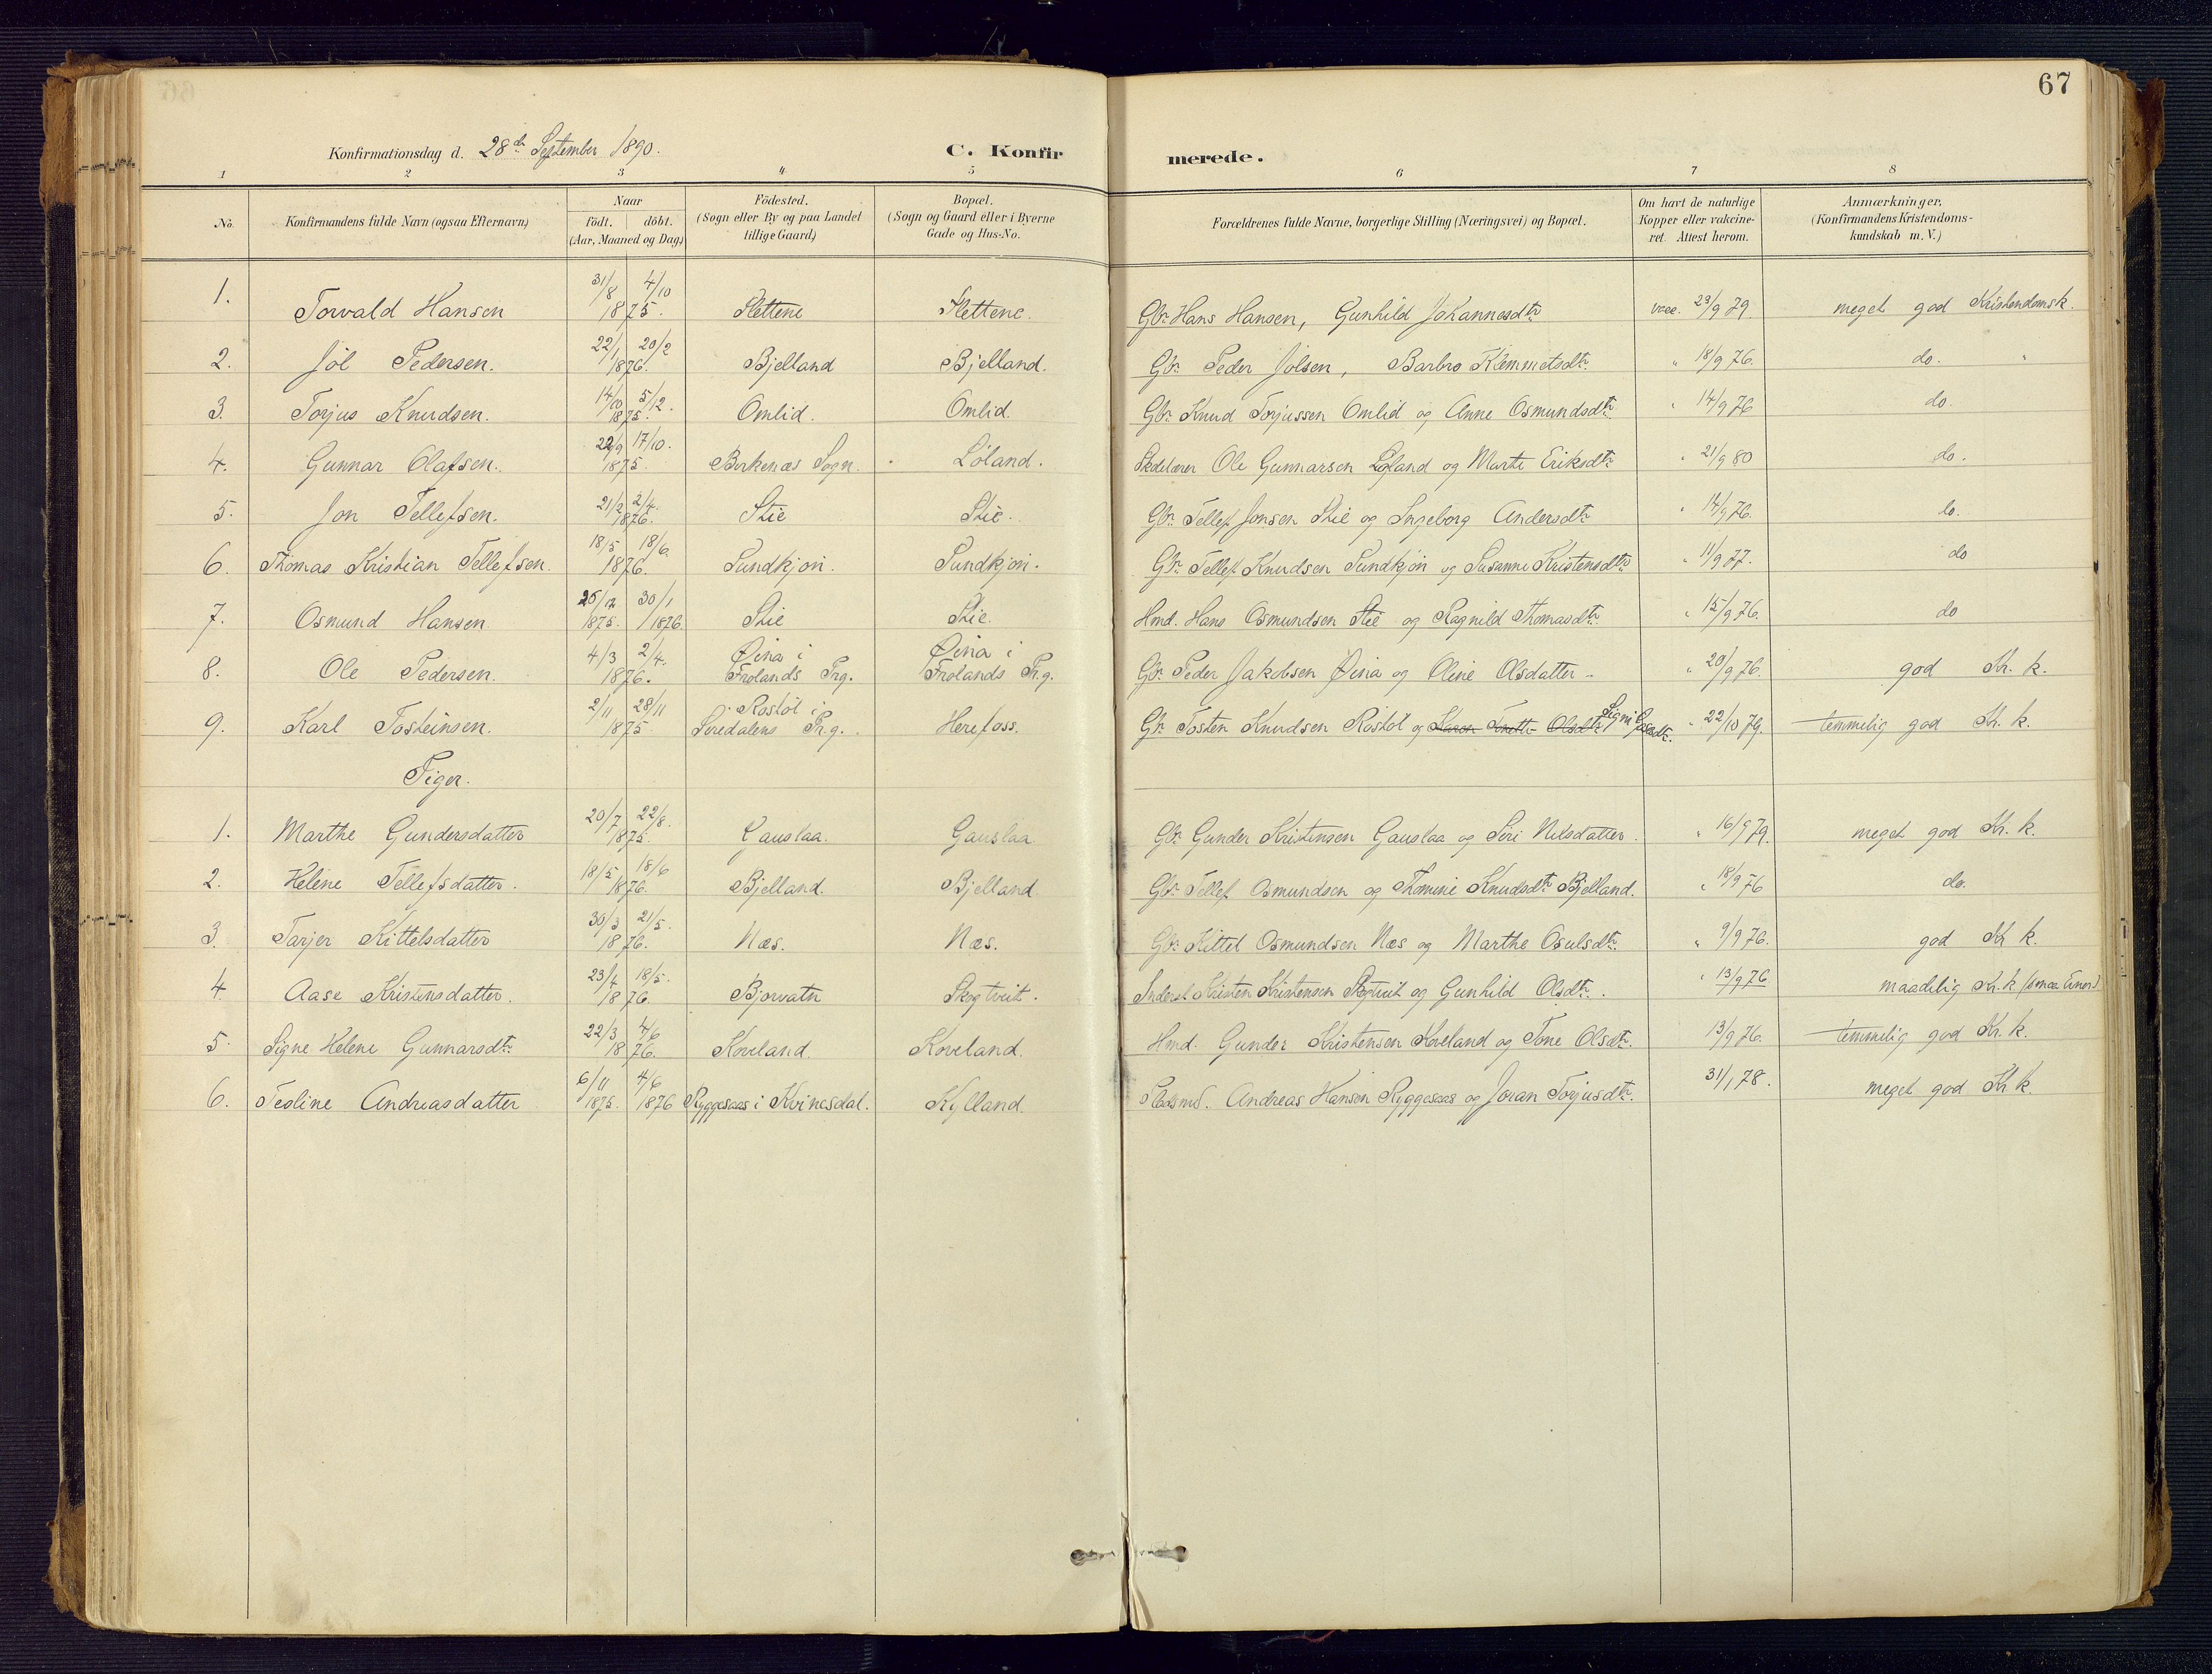 67
Konfirmationsdag d. 28de September 1890.
C. Konfirmerede.
1 2 3 4 5 6 7 8
No. | Konfirmandens fulde Navn (ogsaa Efternavn) | Naar født. | døbt. (Aar, Maaned og Dag) | Födested. (Sogn eller By og paa Landet tillige Gaard) | Bopæl. (Sogn og Gaard eller i Byerne Gade og Hus-No. | Forældrenes fulde Navne, borgerlige Stilling (Næringsvei) og Bopæl. | Om havt de naturlige Kopper eller vakcineret. Attest herom. | Anmærkninger. (Konfirmandens Kristendomskundskab m. V.)
1. Torvald Hansen 31/8 4/10 1875. Slettene Slettene. Gbr. Hans Hansen, Gunhild Johannesdtr vacc. 23/9 79. meget god Kristendomsk.
2. Jøl Pedersen. 22/1 20/2 1876. Bjelland Bjelland. Gbr. Peder Jølsen, Barbro Klemmetsdtr. " 18/9 76. do. "
3. Torjus Knudsen. 14/10 5/12. 1875. Omlid. Omlid. Gbr. Knud Torjussen Omlid og Anne Osmundsdtr " 14/9 76 do.
4. Gunnar Olafsen. 22/9 17/10. 1875. Birkenæs Sogn. Løland. Skolelærer Ole Gunnarsen Løland og Marte Eriksdtr " 21/9 80 do.
5. Jon Tellefsen. 21/2 2/4. 1876. Stie Stie. Gbr. Tellef Jonsen Stie og Ingeborg Andersdtr " 14/9 76. do.
6. Thomas Kristian Tellefsen. 18/5 18/6 1876. Sundkjøn. Sundkjøn. Gbr. Tellef Knudsen Sundkjøn og Susanne Kristensdtr " 11/9 77. do
7. Osmund Hansen 26/12 1875. 30/1 1876. Stie Stie. Hmd. Hans Osmundsen Stie og Ragnild Thomasdtr. " 15/9 76. do
8. Ole Pedersen. 4/3 2/4. 1876. Øina i Frolands Prg. Øina i Frolands Prg. Gbr. Peder Jakobsen Øina og Oline Olsdatter " 20/9 76. god Kr. k.
9. Karl Tosteinsen. 2/11 28/11 1875. Rostøl i Siredalens Prg. Herefoss. Gbr. Tosten Knudsen Rostøl og Karen Olsdtr Signi " 22/10 79. temmelig god Kr. k.
Piger.
1. Marthe Gundersdatter 20/7 22/8. 1875. Gauslaa. Gauslaa Gbr. Gunder Kristensen Gauslaa og Siri Nilsdatter. " 16/9 79. meget god Kr. k.
2. Helene Tellefsdatter. 18/5 18/6 1876. Bjelland. Bjelland. Gbr. Tellef Osmundsen og Thomine Knudsdtr Bjelland. " 18/9 76 do.
3. Tarjer Kittelsdatter 30/3 21/5. 1876. Næs. Næs. Gbr. Kittel Osmundsen Næs og Marthe Osulsdtr. " 9/9 76. god Kr k.
4. Aase Kristensdatter. 23/4 18/5. 1876. Bjorvatn Skogtveit. Inderst Kristen Kristensen Skogtveit og Gunhild Olsdtr. " 13/9 76 maadelig Kr. k (smaa Evner)
5. Signe Helene Gunnarsdtr. 22/3 4/6 1876. Koveland. Koveland. Hmd. Gunder Kristensen Koveland og Tone Olsdtr. 13/9 76. temmelig god Kr. k.
6. Tesline Andreasdatter 6/11 1875. 4/6 1876 Ryggesaas i Kvinesdal. Kylland. Pladsmd. Andreas Hansen Ryggesaas og Joran Torjusdtr. 31/1 78. meget god Kr k.